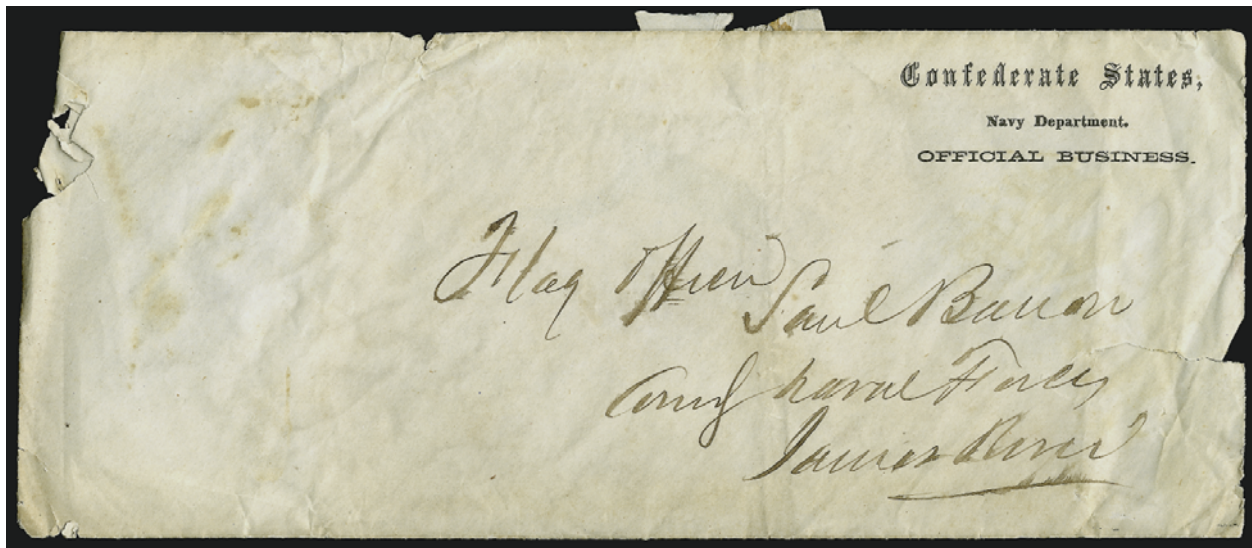 Confederate States,
Navy Department.
OFFICIAL BUSINESS.
Flag Officer
Saml Barron
Comg Naval Forces
James River